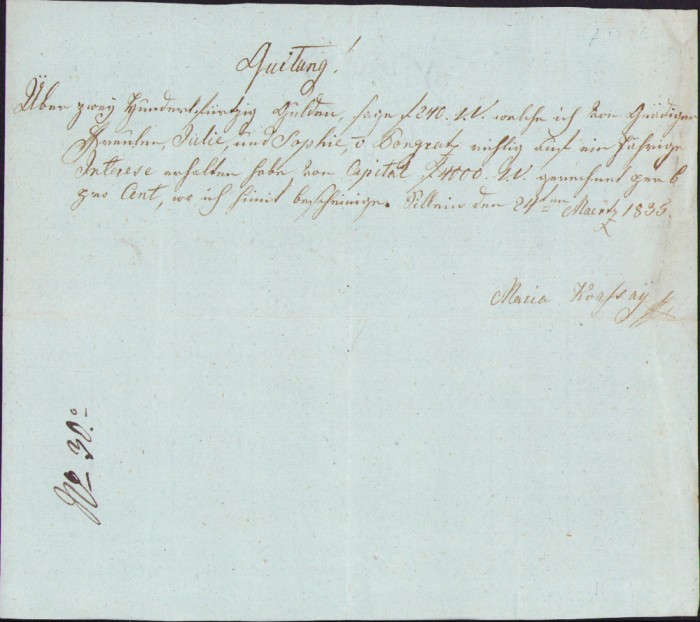 Quitung!
Über zwey Hundert fürtzig Gulden, sage f 240. V.V. welche ich von Gnädigen
Freulen, Julie, und Sophie, v Pongratz richtig auf ein Jährige
Interese erhalten habe von Capital f 4000. V.V. gerechnet per 6
pro Cent, wo ich himit bescheinige. den 24ten Maertz 1835.
Maria
No 30.